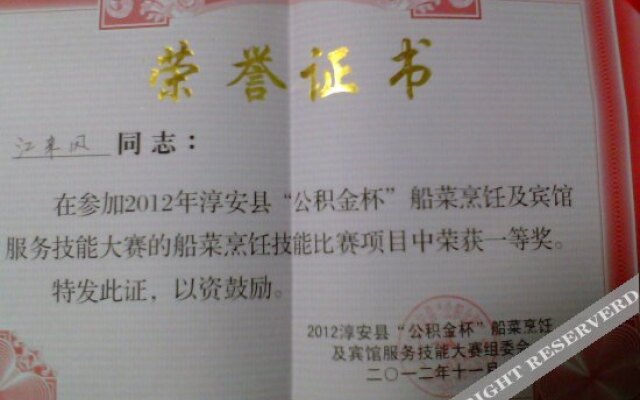 荣誉证书
江来凤 同志：
在参加2012年淳安县“公积金杯”船菜烹饪及宾馆
服务技能大赛的船菜烹饪技能比赛项目中荣获一等奖。
特发此证，以资鼓励。
2012淳安县“公积金杯”船菜烹饪
及宾馆服务技能大赛组委会
二〇一二年十一月
RIGHT RESERVERD